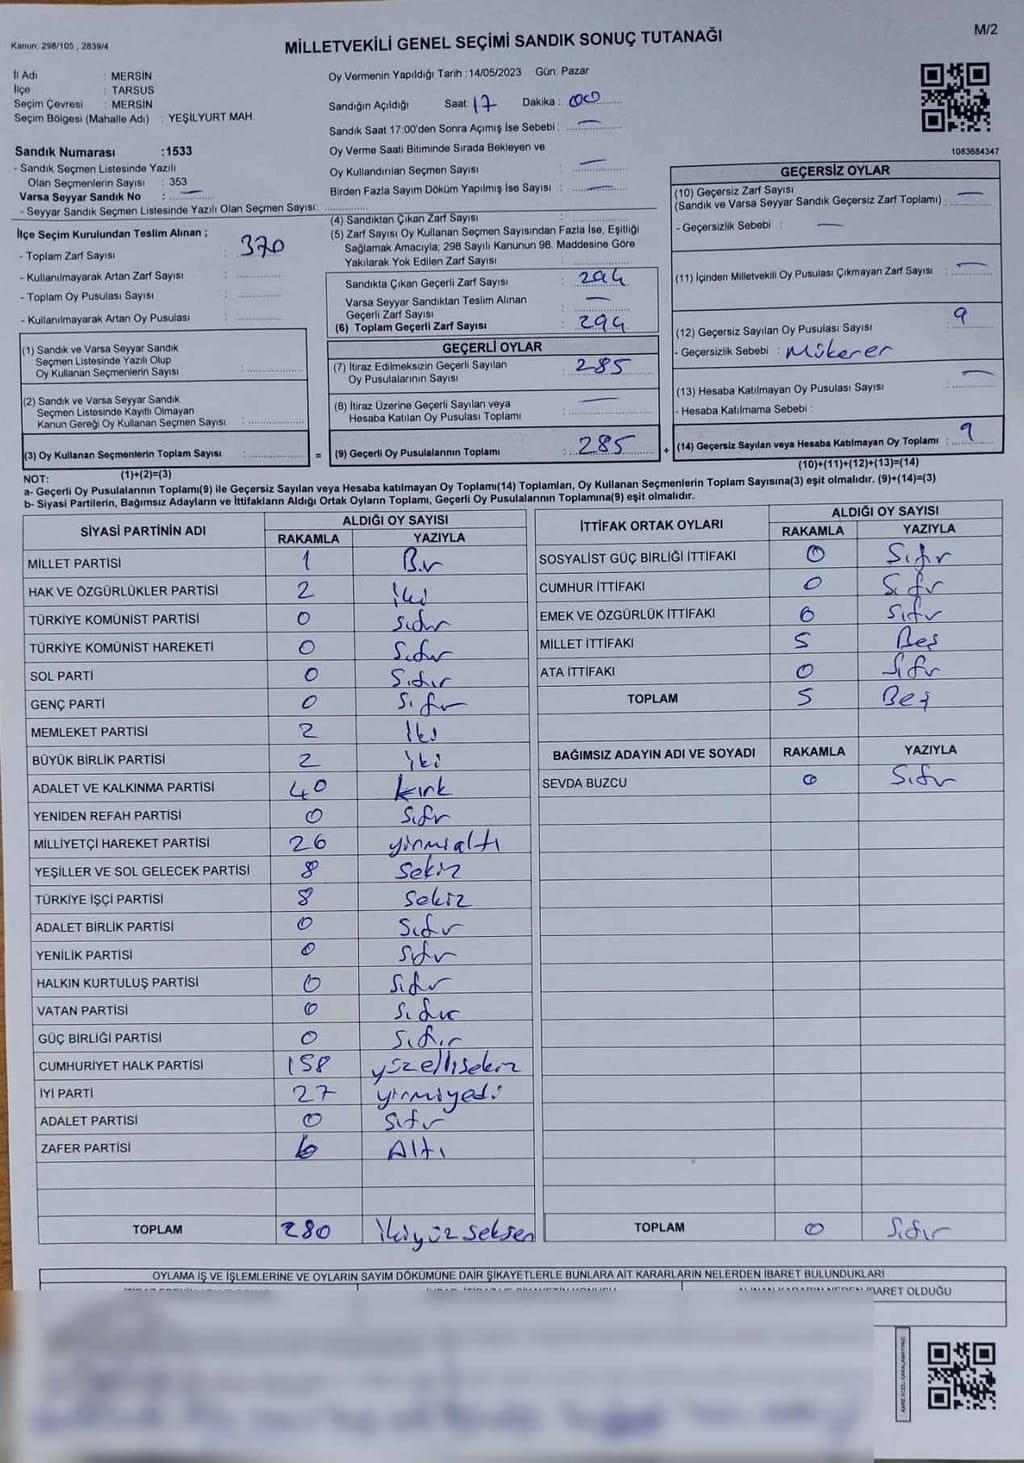 Kanun: 298/105 , 2839/4
MİLLETVEKİLİ GENEL SEÇİMİ SANDIK SONUÇ TUTANAĞI
M/2
İl Adı : MERSİN
İlçe : TARSUS
Seçim Çevresi : MERSİN
Seçim Bölgesi (Mahalle Adı) : YEŞİLYURT MAH.
Sandık Numarası :1533
- Sandık Seçmen Listesinde Yazılı
Olan Seçmenlerin Sayısı : 353
Varsa Seyyar Sandık No : —
- Seyyar Sandık Seçmen Listesinde Yazılı Olan Seçmen Sayısı:
İlçe Seçim Kurulundan Teslim Alınan ;
- Toplam Zarf Sayısı : 370
- Kullanılmayarak Artan Zarf Sayısı :
- Toplam Oy Pusulası Sayısı :
- Kullanılmayarak Artan Oy Pusulası :
(1) Sandık ve Varsa Seyyar Sandık
Seçmen Listesinde Yazılı Olup
Oy Kullanan Seçmenlerin Sayısı :
(2) Sandık ve Varsa Seyyar Sandık
Seçmen Listesinde Kayıtlı Olmayan
Kanun Gereği Oy Kullanan Seçmen Sayısı :
(3) Oy Kullanan Seçmenlerin Toplam Sayısı :
(1)+(2)=(3)
Oy Vermenin Yapıldığı Tarih :14/05/2023 Gün: Pazar
Sandığın Açıldığı Saat: 17 Dakika : 00
Sandık Saat 17:00'den Sonra Açımış İse Sebebi : —
Oy Verme Saati Bitiminde Sırada Bekleyen ve
Oy Kullandırılan Seçmen Sayısı : —
Birden Fazla Sayım Döküm Yapılmış İse Sayısı : —
(4) Sandıktan Çıkan Zarf Sayısı :
(5) Zarf Sayısı Oy Kullanan Seçmen Sayısından Fazla İse, Eşitliği
Sağlamak Amacıyla; 298 Sayılı Kanunun 98. Maddesine Göre
Yakılarak Yok Edilen Zarf Sayısı :
Sandıkta Çıkan Geçerli Zarf Sayısı : 294
Varsa Seyyar Sandıktan Teslim Alınan
Geçerli Zarf Sayısı : —
(6) Toplam Geçerli Zarf Sayısı : 294
GEÇERLİ OYLAR
(7) İtiraz Edilmeksizin Geçerli Sayılan
Oy Pusulalarının Sayısı : 285
(8) İtiraz Üzerine Geçerli Sayılan veya
Hesaba Katılan Oy Pusulası Toplamı : —
= (9) Geçerli Oy Pusulalarının Toplamı : 285 +
1083684347
GEÇERSİZ OYLAR
(10) Geçersiz Zarf Sayısı
(Sandık ve Varsa Seyyar Sandık Geçersiz Zarf Toplamı) : —
- Geçersizlik Sebebi : —
(11) İçinden Milletvekili Oy Pusulası Çıkmayan Zarf Sayısı : —
(12) Geçersiz Sayılan Oy Pusulası Sayısı : 9
- Geçersizlik Sebebi : Mükerer
(13) Hesaba Katılmayan Oy Pusulası Sayısı : —
- Hesaba Katılmama Sebebi :
(14) Geçersiz Sayılan veya Hesaba Katılmayan Oy Toplamı : 9
(10)+(11)+(12)+(13)=(14)
NOT:
a- Geçerli Oy Pusulalarının Toplamı(9) ile Geçersiz Sayılan veya Hesaba katılmayan Oy Toplamı(14) Toplamları, Oy Kullanan Seçmenlerin Toplam Sayısına(3) eşit olmalıdır. (9)+(14)=(3)
b- Siyasi Partilerin, Bağımsız Adayların ve İttifakların Aldığı Ortak Oyların Toplamı, Geçerli Oy Pusulalarının Toplamına(9) eşit olmalıdır.
SİYASİ PARTİNİN ADI ALDIĞI OY SAYISI
RAKAMLA YAZIYLA
MİLLET PARTİSİ 1 Bir
HAK VE ÖZGÜRLÜKLER PARTİSİ 2 İki
TÜRKİYE KOMÜNİST PARTİSİ 0 Sıfır
TÜRKİYE KOMÜNİST HAREKETİ 0 Sıfır
SOL PARTİ 0 Sıfır
GENÇ PARTİ 0 Sıfır
MEMLEKET PARTİSİ 2 İki
BÜYÜK BİRLİK PARTİSİ 2 İki
ADALET VE KALKINMA PARTİSİ 40 kırk
YENİDEN REFAH PARTİSİ 0 Sıfır
MİLLİYETÇİ HAREKET PARTİSİ 26 yirmialtı
YEŞİLLER VE SOL GELECEK PARTİSİ 8 Sekiz
TÜRKİYE İŞÇİ PARTİSİ 8 Sekiz
ADALET BİRLİK PARTİSİ 0 Sıfır
YENİLİK PARTİSİ 0 Sıfır
HALKIN KURTULUŞ PARTİSİ 0 Sıfır
VATAN PARTİSİ 0 Sıfır
GÜÇ BİRLİĞİ PARTİSİ 0 Sıfır
CUMHURİYET HALK PARTİSİ 158 yüzellisekiz
İYİ PARTİ 27 yirmiyedi
ADALET PARTİSİ 0 Sıfır
ZAFER PARTİSİ 6 Altı
TOPLAM 280 ikiyüz seksen
İTTİFAK ORTAK OYLARI ALDIĞI OY SAYISI
RAKAMLA YAZIYLA
SOSYALİST GÜÇ BİRLİĞİ İTTİFAKI 0 Sıfır
CUMHUR İTTİFAKI 0 Sıfır
EMEK VE ÖZGÜRLÜK İTTİFAKI 0 Sıfır
MİLLET İTTİFAKI 5 Beş
ATA İTTİFAKI 0 Sıfır
TOPLAM 5 Beş
BAĞIMSIZ ADAYIN ADI VE SOYADI RAKAMLA YAZIYLA
SEVDA BUZCU 0 Sıfır
TOPLAM 0 Sıfır
OYLAMA İŞ VE İŞLEMLERİNE VE OYLARIN SAYIM DÖKÜMÜNE DAİR ŞİKAYETLERLE BUNLARA AİT KARARLARIN NELERDEN İBARET BULUNDUKLARI
İBARET OLDUĞU